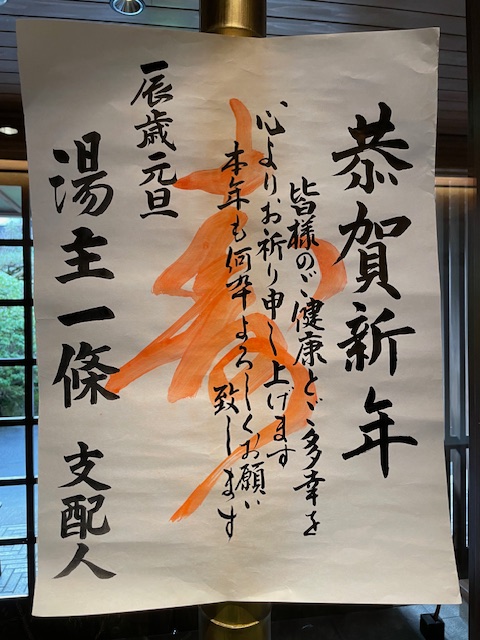 恭賀新年
皆様のご健康とご多幸を
心よりお祈り申し上げます
本年も何卒よろしくお願い
致します
辰歳元旦
湯主一條 支配人
寿